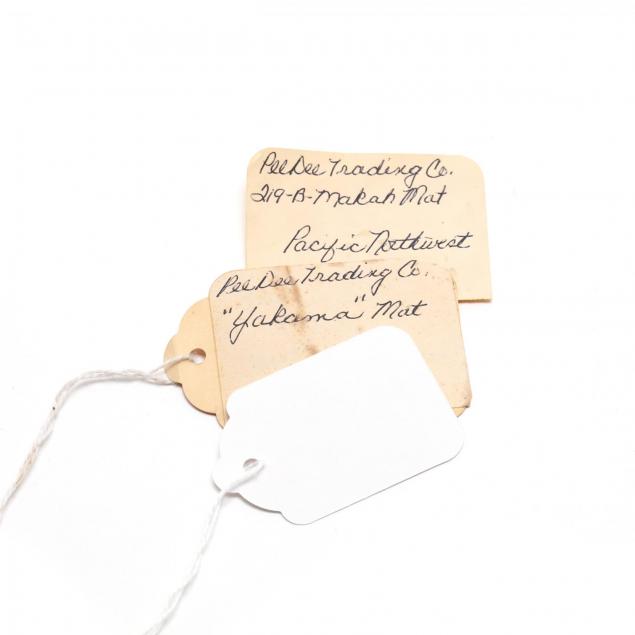 PeeDee Trading Co.
219-B-Makah Mat
Pacific Northwest
Pee Dee Trading Co.
"Yakama" Mat